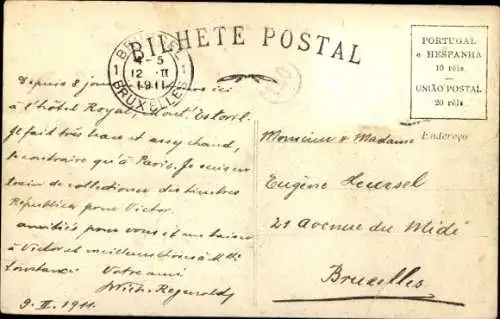 BILHETE POSTAL
PORTUGAL
e HESPANHA
10 réis
UNIÃO POSTAL
20 réis
BRUXELLES
1 4-5 1
12 II
1911
BRUXELLES
Depuis 8 jours ici
à l'hôtel Royal, Mont' Estoril.
Il fait très beau et assez chaud,
le contraire qu'à Paris. Je suis en
train de collectionner des timbres
Republica pour Victor.
amitiés pour vous et un baiser
à Victor et meilleurs
Votre ami
9. II. 1911.
Monsieur & Madame
Endereço
Eugène
21 Avenue du Midi
Bruxelles